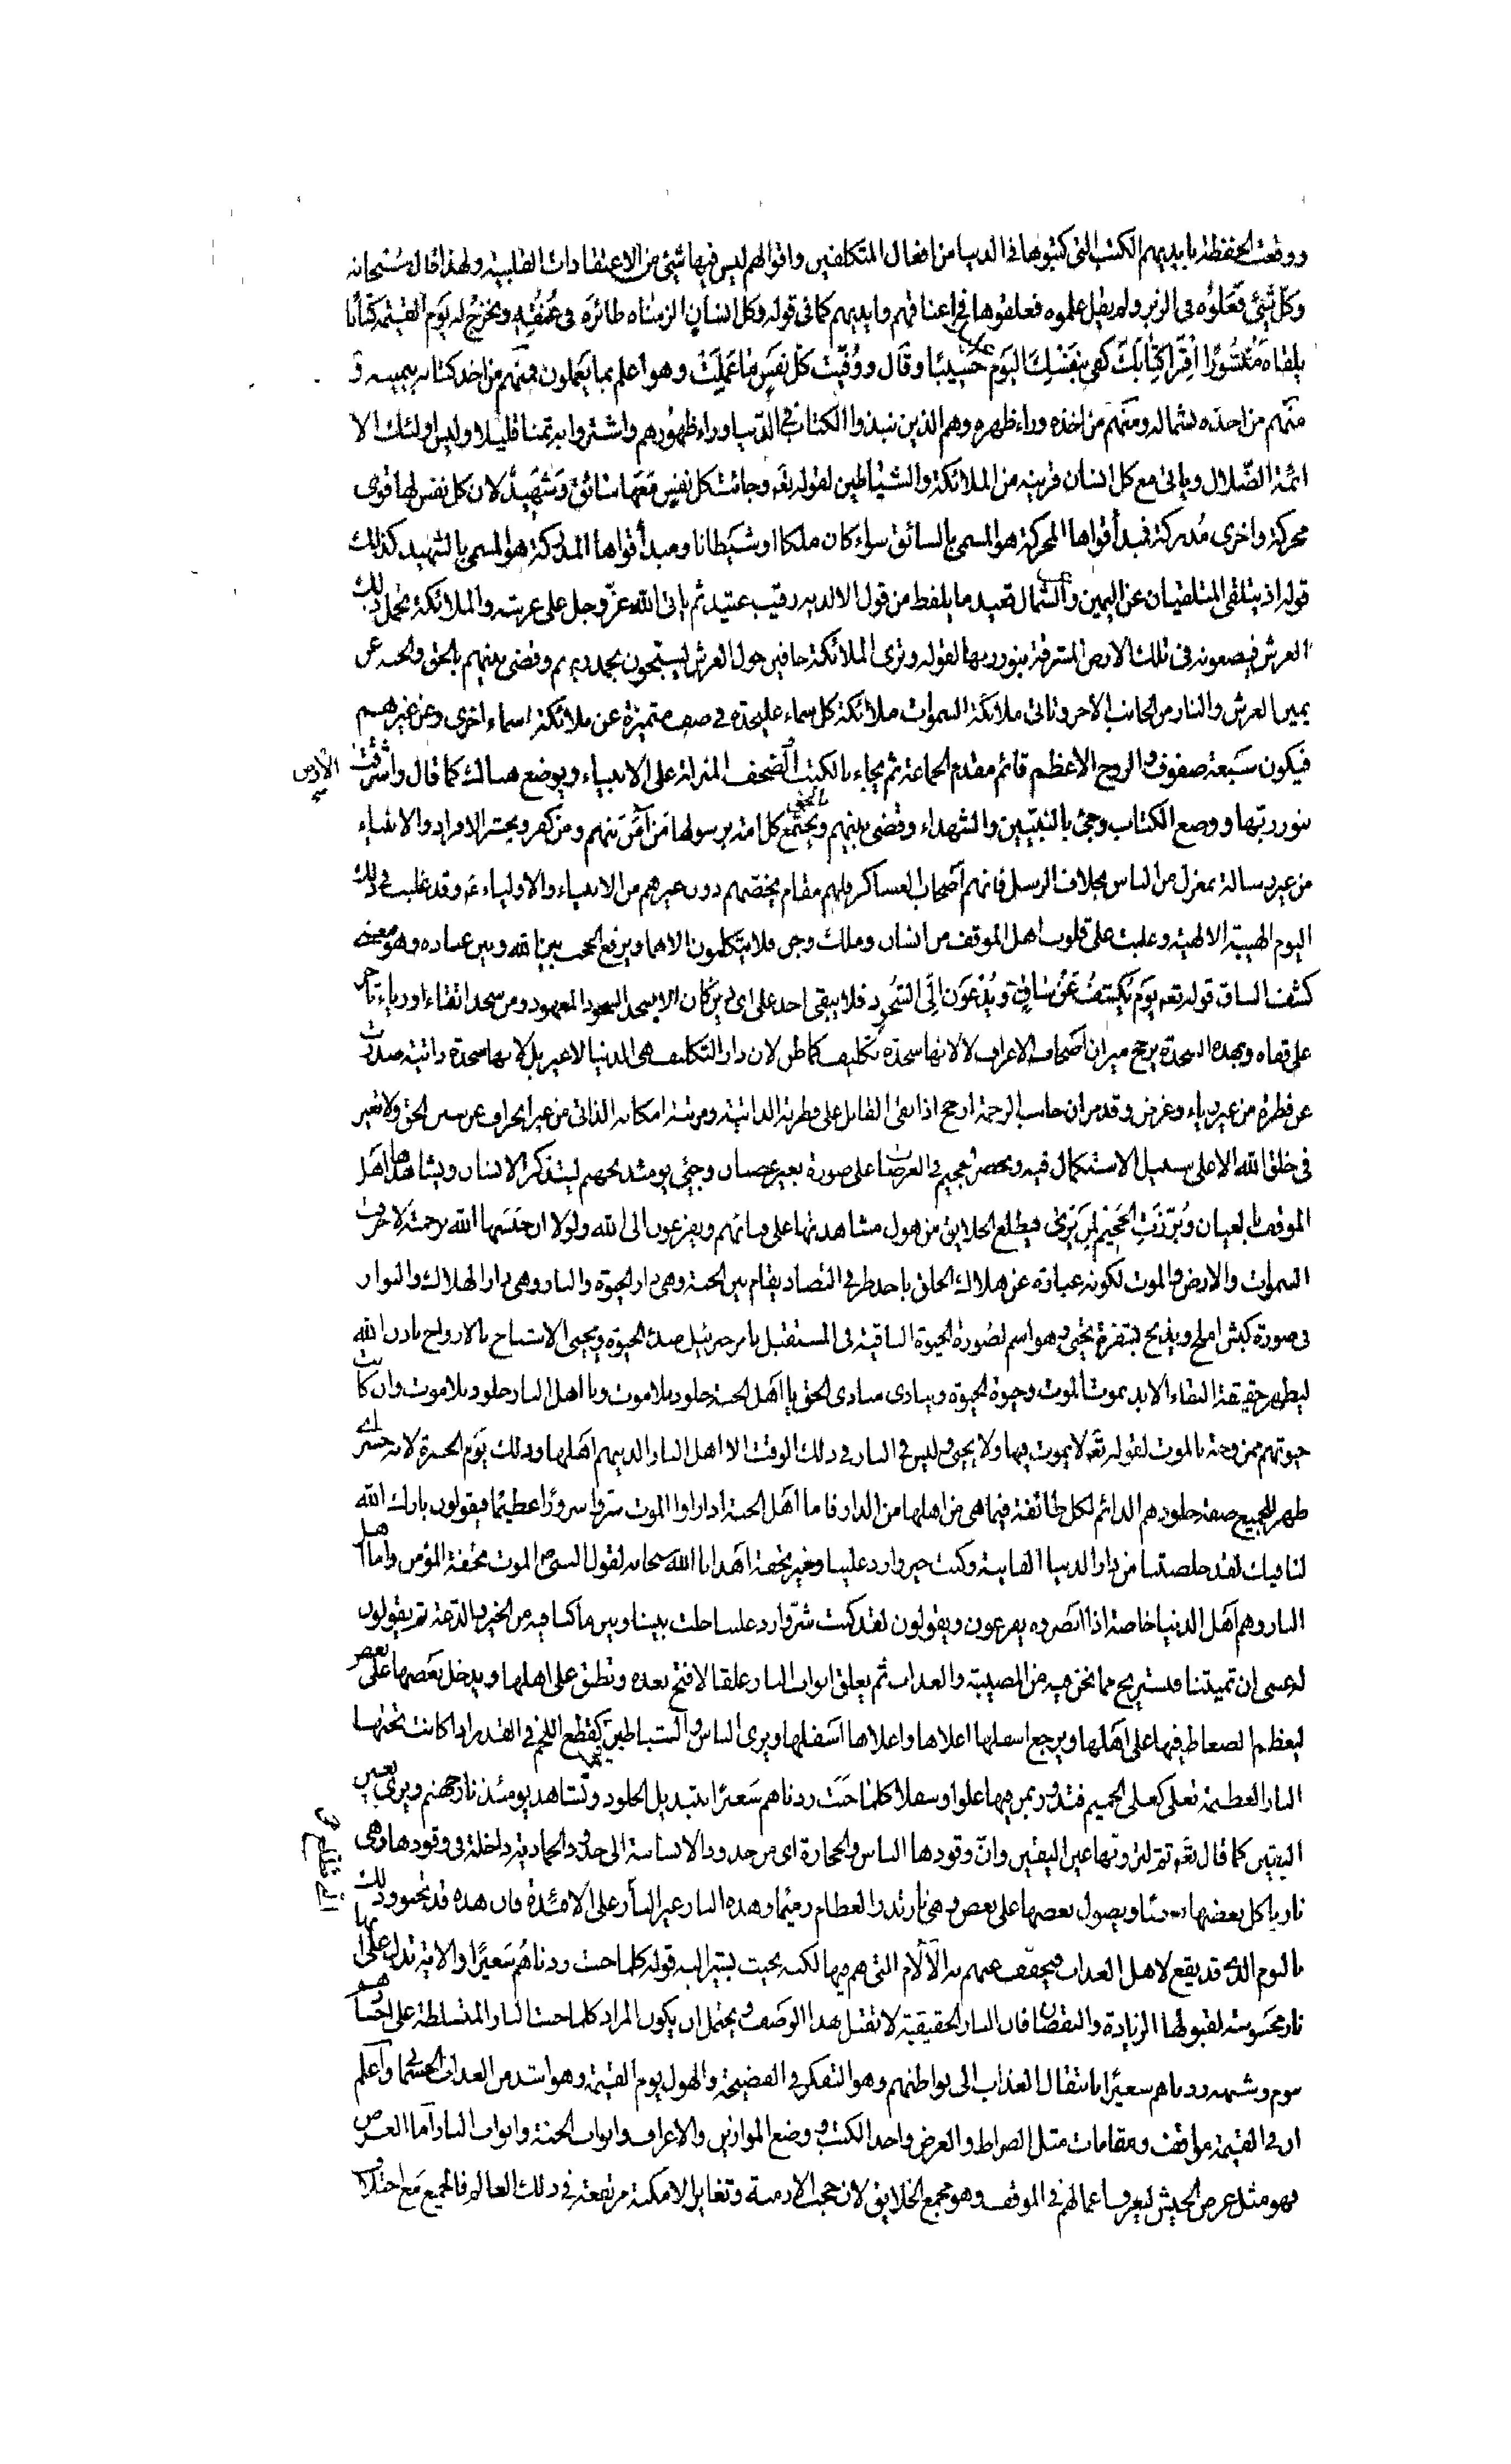 ووقعت الحفظة بايديهم الكتب التي كتبوها في الدنيا من افعال المتكلفين واقوالهم ليس فيها شئ من الاعتقادات القلبية ولهذا قال سبحانه
وكل شئ فعلوه في الزبر ولم يقل علموه فعلقوها في اعناقهم وايديهم كما في قوله وكل انسان الزمناه طائره في عنقه ونخرج له يوم القيمة كتابا
يلقاه منشورا اقرا كتابك كفى بنفسك اليوم عليك حسيبا وقال ووفيت كل نفس ما عملت وهو اعلم بما يعملون فمنهم من اخذ كتابه بيمينه و
منهم من اخذه بشماله ومنهم من اخذه وراء ظهره وهم الذين نبذوا الكتاب في الدنيا وراء ظهورهم واشتروا به ثمنا قليلا وليس اولئك الا
ائمة الضلال ويأتي مع كل انسان قرينه من الملائكة والشياطين لقوله تعه وجائت كل نفس معها سائق وشهيد لان كل نفس لها قوى
محركة واخرى مدركة فمبدأ قواها المحركة هو المسمى بالسائق سواء كان ملكا او شيطانا ومبدأ قواها المدركة هو المسمى بالشهيد كذلك
قوله اذ يتلقى المتلقيان عن اليمين وعن الشمال قعيد ما يلفظ من قول الا لديه رقيب عتيد ثم يأتى الله عز وجل على عرشه والملائكة تحمل ذلك
العرش فيضعونه في تلك الارض المشرقة بنور ربها لقوله وترى الملائكة حافين حول العرش يسبحون بحمد ربهم وقضى بينهم بالحق والجنة عن
يمين العرش والنار من الجانب الاخر وتأتى ملائكة السموات ملائكة كل سماء عليحدة في صف متميزة عن ملائكة سماء اخرى وعن غيرهم
فيكون سبعة صفوف والروح الاعظم قائم مقدم الجماعة ثم يجاء بالكتب والصحف المنزلة على الانبياء ويوضع هنالك كما قال واشرقت الارض
بنور ربها ووضع الكتاب وجئ بالنبيين والشهداء وقضى بينهم بالحق ويجتمع كل امة برسولها من آمن منهم ومن كفر ويحشر الافراد والانبياء
من غير رسالة بمعزل من الناس بخلاف الرسل فانهم اصحاب العساكر فلهم مقام يخصهم دون غيرهم من الانبياء والاولياء ع وقد غلبت في ذلك
اليوم الهيبة الالهية وغلبت على قلوب اهل الموقف من انسان وملك وجن فلا يتكلمون الا همسا ويرفع الحجب بين الله وبين عباده وهو معنى
كشف الساق قوله تعه يوم يكشف عن ساق ويدعون الى السجود فلا يبقى احد على اى دين كان الا يسجد السجود المعهود ومن سجد اتقاء او رياء خر
على قفاه وبهذه السجدة يرجح ميزان اصحاب الاعراف لا لانها سجدة تكليف كما ظن لان دار التكليف هي الدنيا لا غير بل لانها سجدة ذاتية صدرت
عن فطرة من غير رياء وغرض وقد مر ان جانب الرحمة ارجح اذا بقى القابل على فطرته الذاتية ومرتبة امكانه الذاتى من غير انحراف عن سنن الحق ولا تغيير
في خلق الله الا على سبيل الاستكمال فيه ويحضر الجحيم في العرصات على صورة بعير غضبان وجئ يومئذ بجهنم ليتذكر الانسان ويشاهدها اهل
الموقف بالعيان وبرزت الجحيم لمن يرى فيطلع الخلايق من هول مشاهدتها على فنائهم ويفزعون الى الله ولولا ان حبسها الله برحمته لاحرقت
السموات والارض والموت لكونه عبارة عن هلاك الخلق باحد طرفي التضاد يقام بين الجنة وهى دار الحيوة والنار وهى دار الهلاك والبوار
في صورة كبش املح ويذبح بشفرة يحيى ع وهو اسم لصورة الحيوة الباقية في المستقبل بامر جبرئيل مبدء الحيوة ومحيى الاشباح بالارواح باذن الله
ليظهر حقيقة البقاء الابد بموت الموت وحيوة الحيوة وينادى منادى الحق يا اهل الجنة خلود بلا موت ويا اهل النار خلود بلا موت وان كانت
حيوتهم ممزوجة بالموت لقوله تعه لا يموت فيها ولا يحيى وليس في النار في ذلك الوقت الا اهل النار الذينهم اهلها وذلك يوم الحسرة لانه حسر اى
ظهر للجميع صفة خلودهم الدائم لكل طائفة فيما هى من اهلها من الدار فاما اهل الجنة اذا راوا الموت سروا سرورا عظيما فيقولون بارك الله
لنا فيك لقد خلصتنا من دار الدنيا الفانية وكنت خير وارد علينا وخير تحفة اهدانا الله سبحانه لقول النبى ص الموت تحفة المؤمن واما اهل
النار وهم اهل الدنيا خاصة اذا ابصروه يفرعون ويقولون لقد كنت شر وارد علينا حلت بيننا وبين ما كنا فيه من الخير والدعة ثم يقولون
له عسى ان تميتنا فنستريح مما نحن فيه من المصيبة والعذاب ثم يغلق ابواب النار غلقا لا فتح بعده وتطبق على اهلها ويدخل بعضها على بعض
ليعظم الضغاط فيها على اهلها ويرجع اسفلها اعلاها واعلاها اسفلها ويرى الناس والشياطين فيها كقطع اللحم في القدر اذا كانت تحتها
النار العظيمة تغلى كغلى الحميم فتدور بمن فيها علوا وسفلا كلما خبت زدناهم سعيرا بتبديل الجلود وتشاهد يومئذ نار جهنم ويرى بعين
اليقين كما قال تعه ثم لترونها عين اليقين وان وقودها الناس والحجارة اى من حدود الانسانية الى حدود الجمادية داخلة في وقودها وهى
نار ياكل بعضها بعضا ويصول بعضها على بعض وهى نار تذر العظام رميما وهذه النار غير النار على الافئدة فان هذه قد تخبو وذلك
بالنوم الذى قد يقع لاهل العذاب فيخفف عنهم به الآلام التى هم فيها لكنه بحيث يشير اليه قوله كلما خبت زدناهم سعيرا والاية تدل على انها
نار محسوسة لقبولها الزيادة والنقصان فان النار الحقيقية لا تقبل هذا الوصف ويحتمل ان يكون المراد كلما خبت النار المتسلطة على اجسا
زدناهم سعيرا بانتقال العذاب الى بواطنهم وهو التفكر في الفضيحة والهول يوم القيمة وهو اشد من العذاب الجسمانى واعلم
ان في القيمة مواقف ومقامات مثل الصراط والعرض واخذ الكتب ووضع الموازين والاعراف وابواب الجنة وابواب النار اما العرض
فهو مثل عرض الجيش ليعرف اعمالهم في الموقف وهو مجمع الخلايق لان حجب الازمنة وتغاير الامكنة مرتفعة في ذلك العالم فالجميع مع اختلاف